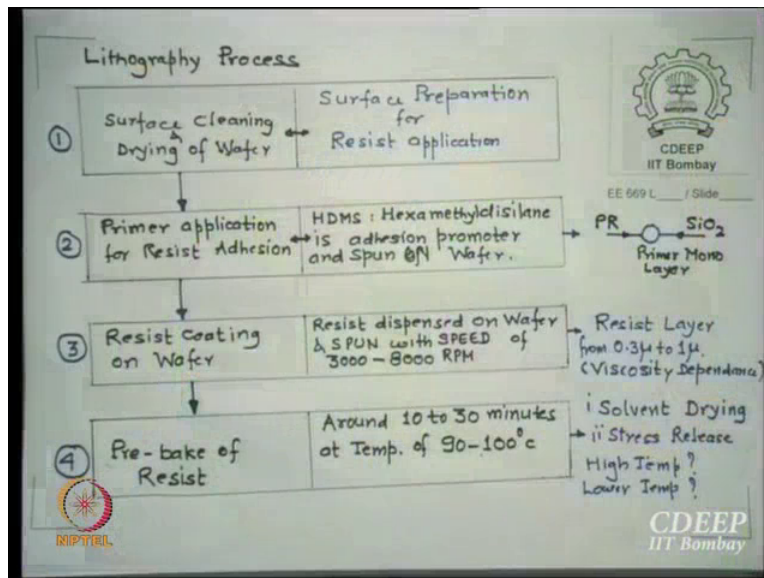 Lithography Process
CDEEP
IIT Bombay
EE 669 L___ / Slide____
① Surface & Cleaning
Drying of Wafer
Surface Preparation
for
Resist application
② Primer application
for Resist Adhesion
HDMS : Hexamethyldisilane
is adhesion promoter
and Spun ON Wafer.
PR
SiO2
Primer Mono
Layer
③ Resist Coating
on Wafer
Resist dispensed on Wafer
& SPUN with SPEED of
3000 - 8000 RPM
Resist Layer
from 0.3μ to 1μ.
(Viscosity Dependance)
④ Pre-bake of
Resist
Around 10 to 30 minutes
at Temp. of 90-100°c
i Solvent Drying
ii Stress Release
High Temp?
Lower Temp?
NPTEL
CDEEP
IIT Bombay